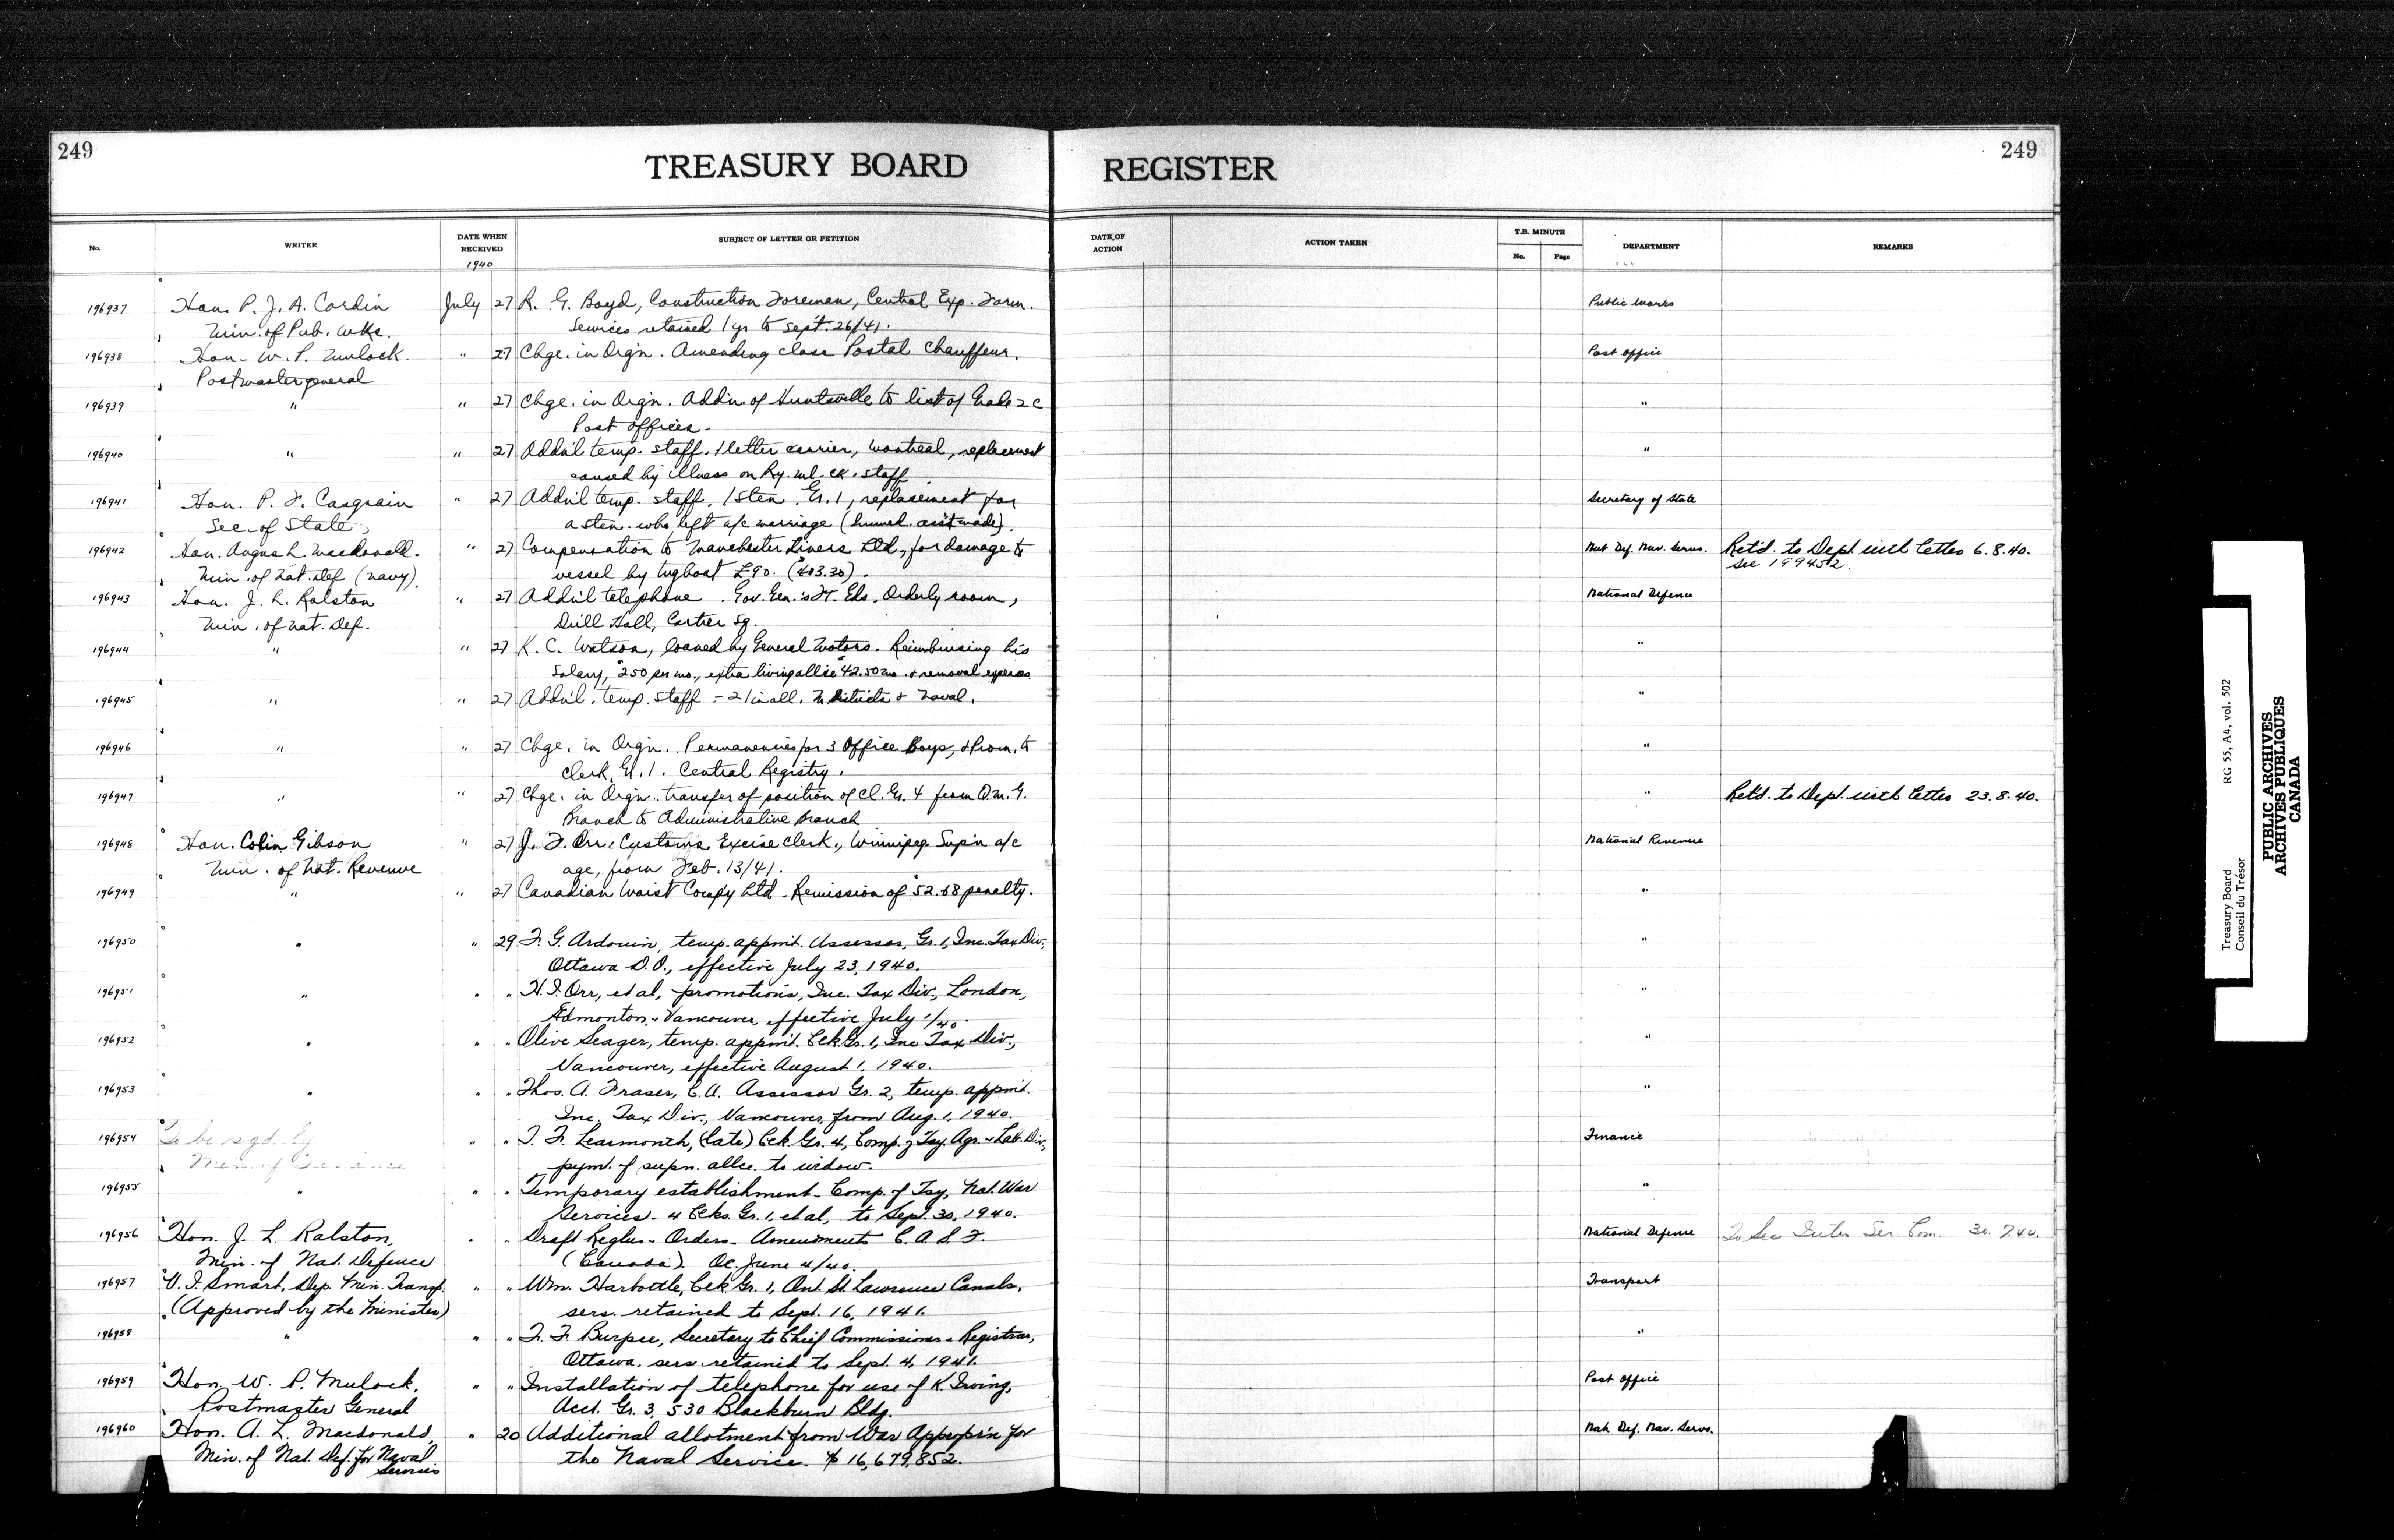 249
TREASURY BOARD REGISTER
249
No. WRITER DATE WHEN RECEIVED SUBJECT OF LETTER OR PETITION DATE OF ACTION ACTION TAKEN T.B. MINUTE No. Page DEPARTMENT REMARKS
1940
196937 Hon. P. J. A. Cardin July 27 R. G. Boyd, Construction Foreman, Central Exp. Farm. Public Works
Min. of Pub. Wks. Services retained 1 yr to Sept. 26/41.
196938 Hon. W. P. Mulock. " 27 Chge. in Orgn. Amending class Postal Chauffeur. Post Office
Postmaster general
196939 " " 27 Chge. in Orgn. Addn of Huntsville to list of Grade 2C "
Post offices.
196940 " " 27 Addn'l temp. staff. 1 letter carrier, Montreal, replacement "
caused by illness on Ry. ml. ck. staff
196941 Hon. P. F. Casgrain " 27 Addn'l temp. staff. 1 Sten. Gr. 1, replacement for Secretary of State
Sec. of State a sten. who left a/c marriage
196942 Hon. Angus L. Macdonald. " 27 Compensation to Manchester Liners Ltd., for damage to Nat. Def. Nav. Servs. Ret'd. to Dept. with letter 6.8.40.
Min. of Nat. Def (Navy). vessel by tugboat £90. ($403.30). See 199452.
196943 Hon. J. L. Ralston " 27 Addn'l telephone. Gov. Gen.'s Ft. Gds. Orderly room, National Defence
Min. of Nat. Def. Drill Hall, Cartier Sq.
196944 " " 27 K. C. Watson, loaned by General Motors. Reimbursing his "
Salary, $250 per mo., extra living allce $42.50 mo. & removal expenses
196945 " " 27 Addn'l. temp. staff - 21 in all. M. Districts & Naval. "
196946 " " 27 Chge. in Orgn. Permanencies for 3 Office Boys, & Prom. to "
Clerk, Gr. 1. Central Registry.
196947 " " 27 Chge. in Orgn. transfer of position of Cl. Gr. 4 from Q.M.G. " Ret'd. to Dept. with letter 23.8.40.
Branch to Administrative Branch
196948 Hon. Colin Gibson " 27 J. F. Orr, Customs Excise Clerk, Winnipeg. Sup'n a/c National Revenue
Min. of Nat. Revenue age, from Feb. 13/41.
196949 " " 27 Canadian Waist Comp'y Ltd. Remission of $52.68 penalty. "
196950 " " 29 F. G. Ardouin, temp. appmt. Assessor, Gr. 1, Inc. Tax Div., "
Ottawa D.O., effective July 23, 1940.
196951 " " " H. I. Orr, et al, promotions, Inc. Tax Div., London, "
Edmonton, & Vancouver, effective July 1/40.
196952 " " " Olive Seager, temp. appmt. Clk. Gr. 1, Inc Tax Div., "
Vancouver, effective August 1, 1940.
196953 " " " Thos. A. Fraser, C.A. Assessor Gr. 2, temp. appmt. "
Inc. Tax Div., Vancouver, from Aug. 1, 1940.
196954 To be sgd. by " " T. F. Learmonth, (late) Clk. Gr. 4, Comp. of Tsy. Agr. & Lab. Div., Finance
Min. of Finance pymt. of supn. allce. to widow.
196955 " " " Temporary establishment - Comp. of Tsy, Nat. War "
Services - 4 Clks. Gr. 1, et al, to Sept. 30, 1940.
196956 Hon. J. L. Ralston, " " Draft Reglns - Orders - Amendments C.A.S.F. National Defence To Sec Inter Ser Com. 30.7.40.
Min. of Nat. Defence (Canada). OC. June 4/40.
196957 V. I. Smart, Dep. Min. Transp. " " Wm. Harbottle, Clk Gr. 1, Ont. St. Lawrence Canals, Transport
(Approved by the Minister) sers. retained to Sept. 16, 1941.
196958 " " " F. F. Burpee, Secretary to Chief Commissioner & Registrar, "
Ottawa. sers. retained to Sept. 4, 1941.
196959 Hon. W. P. Mulock, " " Installation of telephone for use of K. Irving, Post Office
Postmaster General Acct. Gr. 3, 530 Blackburn Bldg.
196960 Hon. A. L. Macdonald, " 20 Additional allotment from War Appropr'n for Nat. Def. Nav. Servs.
Min. of Nat. Def. for Naval Services the Naval Service. $16,679,852.
Treasury Board RG 55, A4, vol. 502
Conseil du Trésor
PUBLIC ARCHIVES
ARCHIVES PUBLIQUES
CANADA